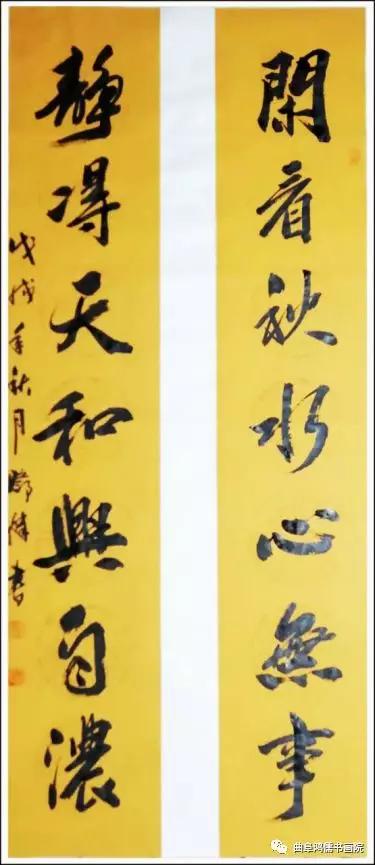 閑看秋水心無事
靜得天和興自濃
戊戌年秋月
書
曲阜鸿儒书画院